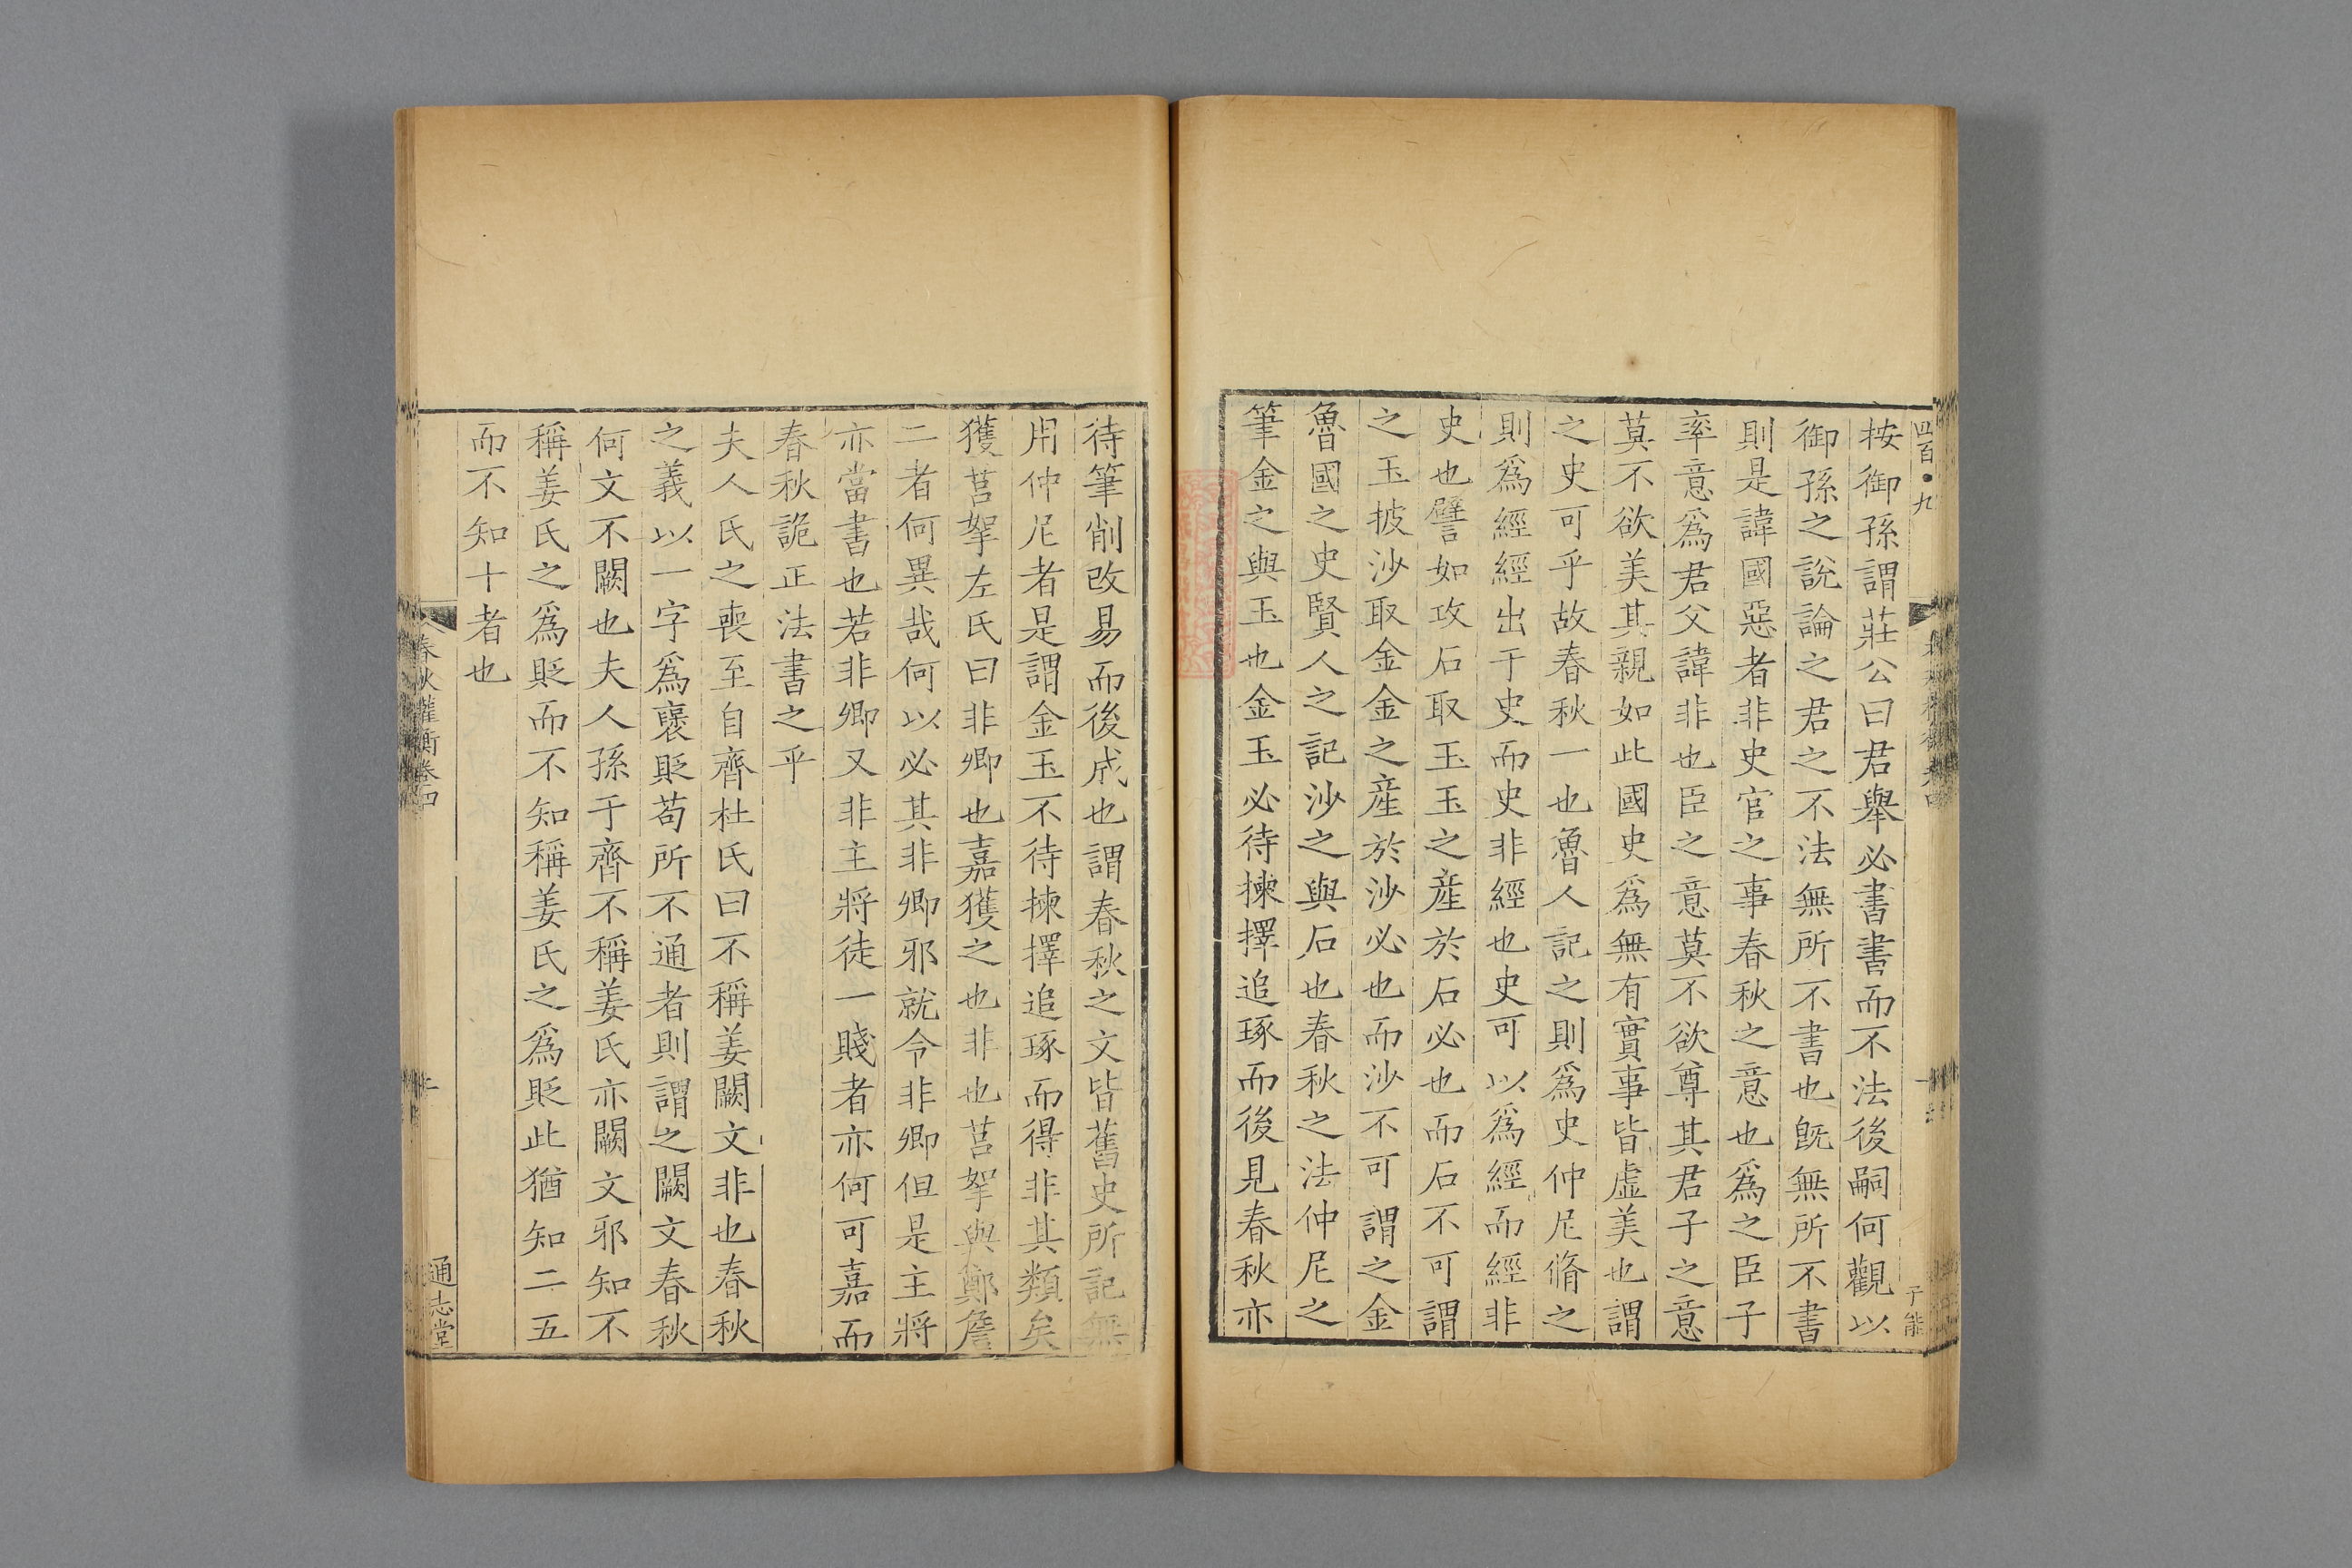 四百九
按御孫謂莊公曰君舉必書書而不法後嗣何觀以
御孫之說論之君之不法無所不書也旣無所不書
則是諱國惡者非史官之事春秋之意也爲之臣子
率意爲君父諱非也臣之意莫不欲尊其君子之意
莫不欲美其親如此國史爲無有實事皆虛美也謂
之史可乎故春秋一也魯人記之則爲史仲尼脩之
則爲經經出于史而史非經也史可以爲經而經非
史也譬如攻石取玉玉之産於石必也而石不可謂
之玉披沙取金金之産於沙必也而沙不可謂之金
魯國之史賢人之記沙之與石也春秋之法仲尼之
筆金之與玉也金玉必待揀擇追琢而後見春秋亦
待筆削改易而後成也謂春秋之文皆舊史所記無
用仲尼者是謂金玉不待揀擇追琢而得非其類矣
獲莒挐左氏曰非卿也嘉獲之也非也莒挐與鄭詹
二者何異哉何以必其非卿邪就令非卿但是主將
亦當書也若非卿又非主將徒一賤者亦何可嘉而
春秋詭正法書之乎
夫人氏之喪至自齊杜氏曰不稱姜闕文非也春秋
之義以一字爲襃貶苟所不通者則謂之闕文春秋
何文不闕也夫人孫于齊不稱姜氏亦闕文邪知不
稱姜氏之爲貶而不知稱姜氏之爲貶此猶知二五
而不知十者也
春秋權衡卷四
通志堂